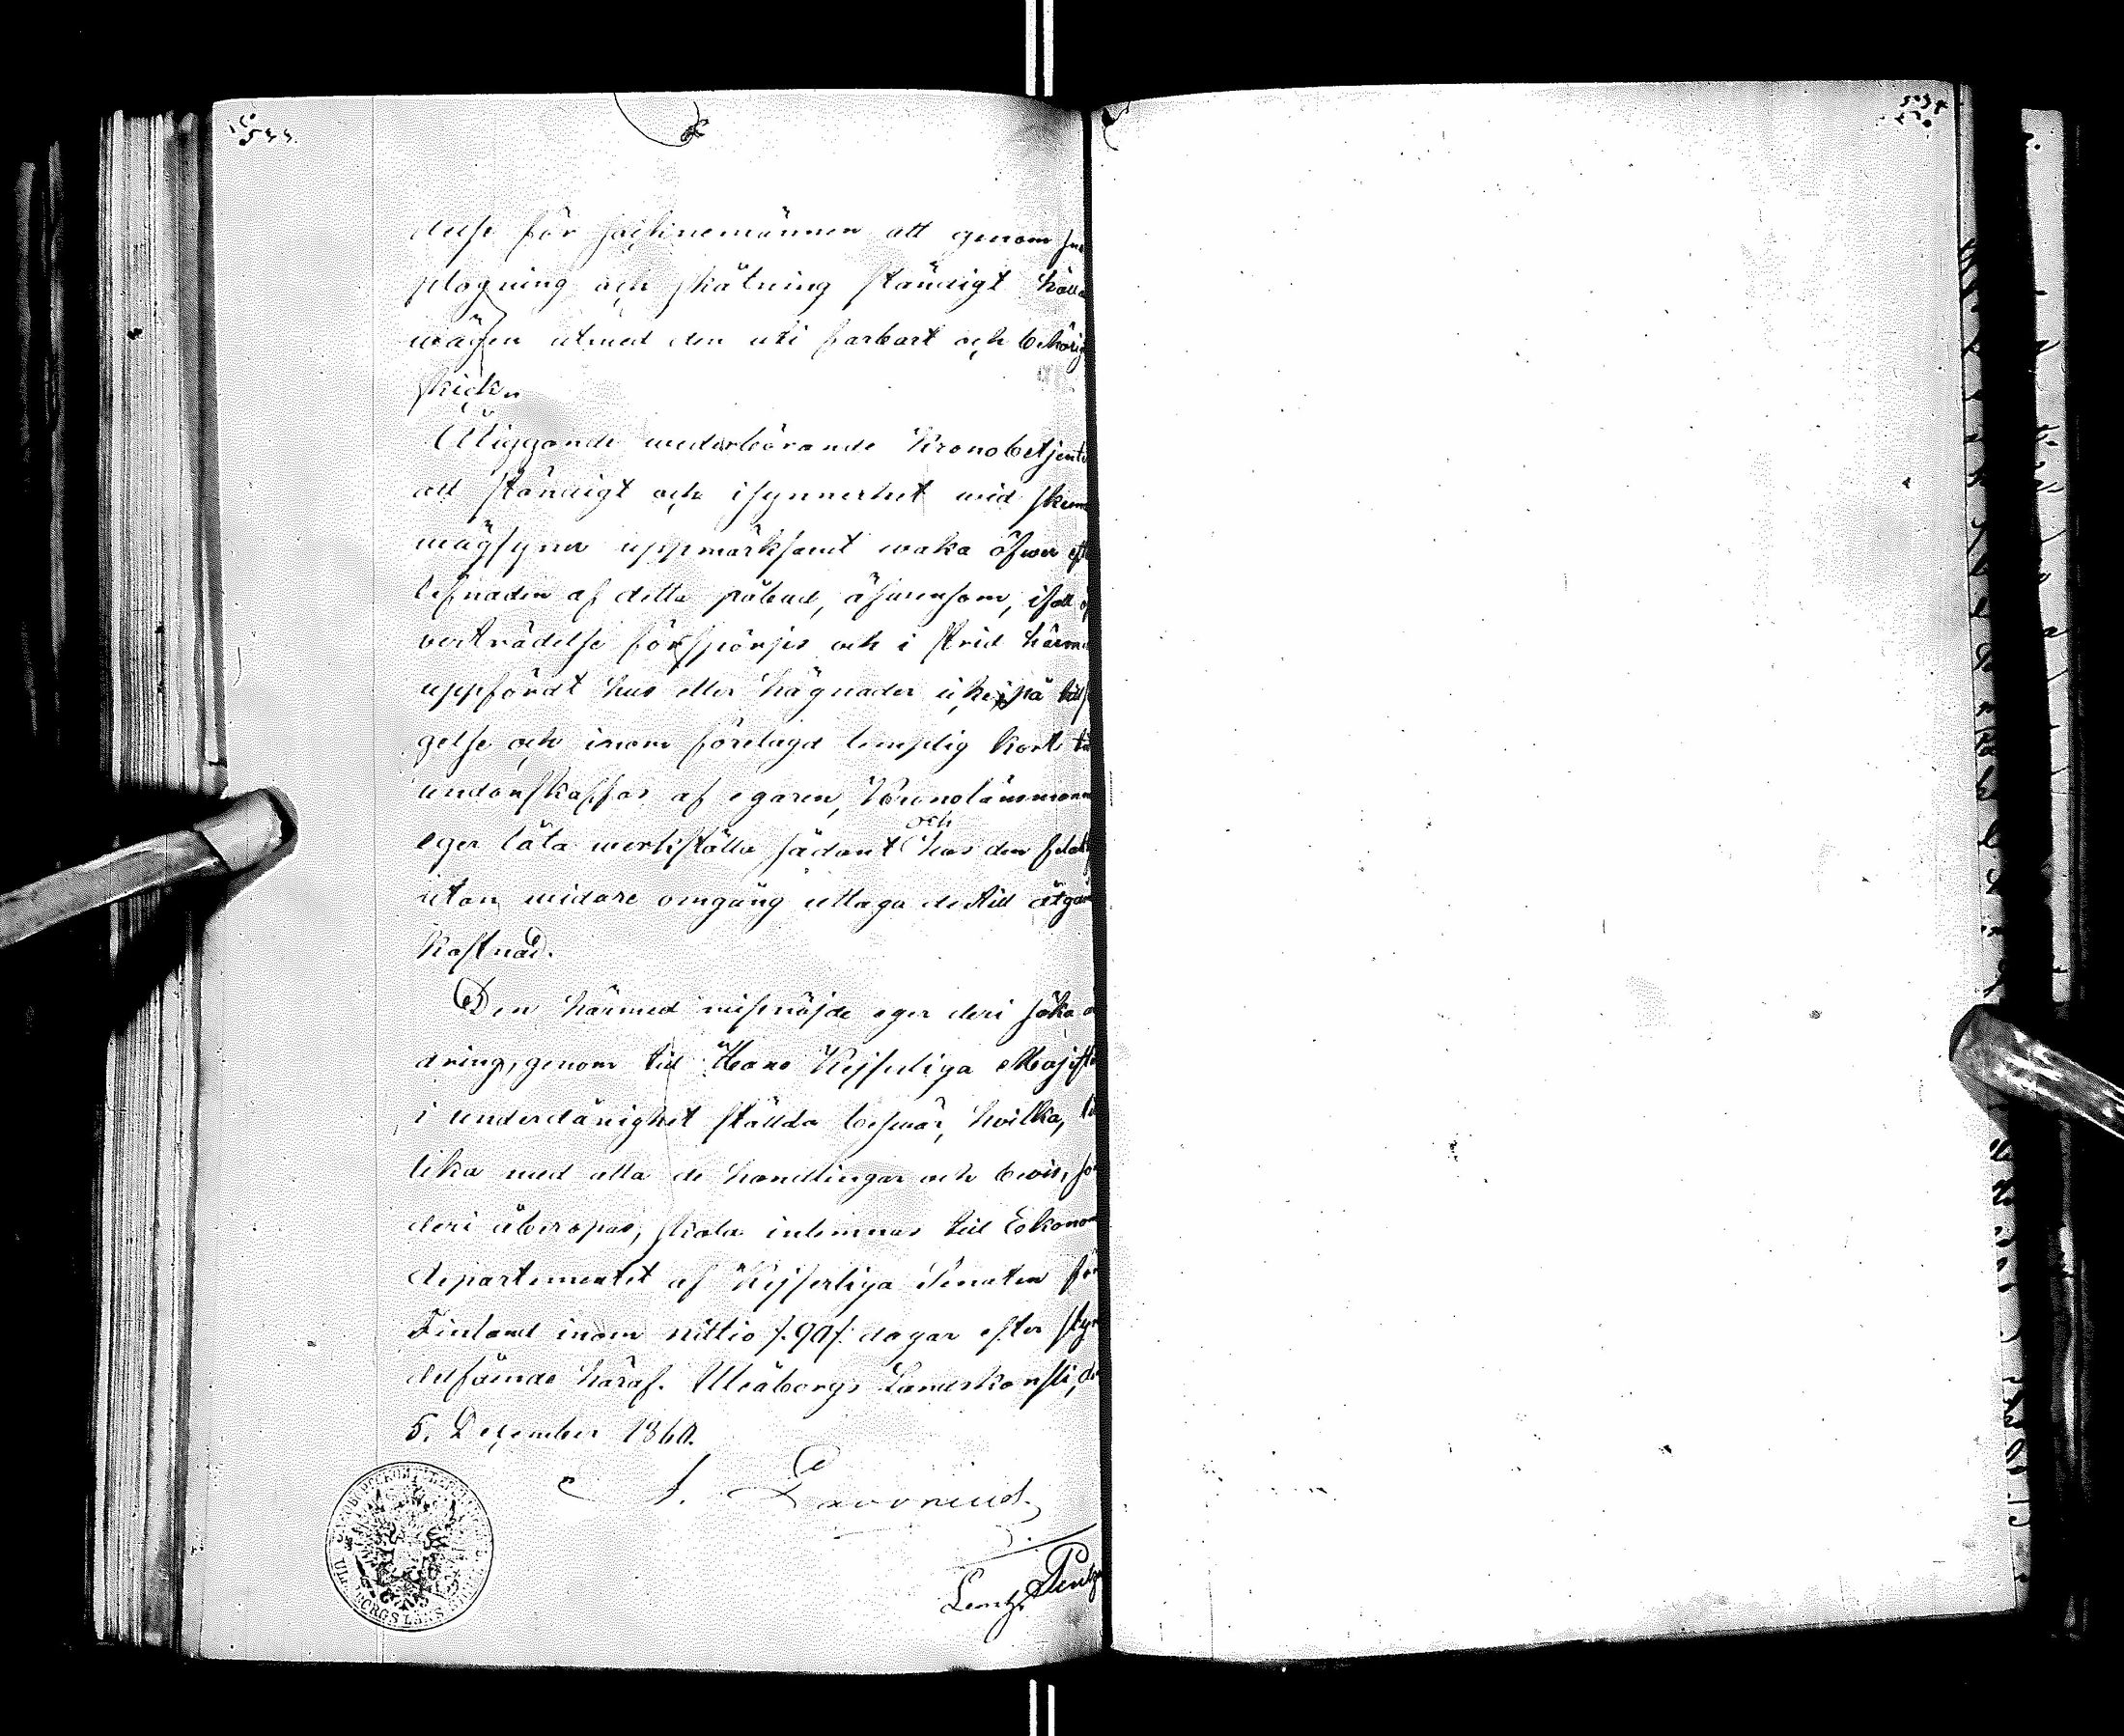 533.
534
delse för sockenemännen att genom snö
plogning och skåtning ständigt hålla
wägen utmed den uti farbart och behörigt
skick.
Åliggande wederbörande Kronobetjente
att ständigt och isynnerhet wid skeende
wägsyner uppmärksamt waka öfwer efter
lefnaden af detta påbud, äfwensom, ifall öf
verträdelse förspörjes och i strid härmed
uppfördt hus eller hägnader icke på tillsä
gelse och inom förelagd lämplig kort tid
undanskaffas af egaren, Kronolänsmannen
eger låta werkställa sådant och hos den felaktige
utan widare omgång uttaga dertill åtgången
kostnad.
Den härmed missnöjde eger deri söka än
dring, genom till Hans Kejserliga Majestät
i underdånighet ställda beswär, hwilka, till
lika med alla de handlingar och bewis, som
deri åberopas, skola inlemnas till Ekonomie
departementet af Kejserliga Senaten för
Finland inom nittio /:90:/ dagar efter styrkt
delfående häraf. Uleåborgs Landskansli, den
5. December 1860.
ULEÅBORGS LÄNS